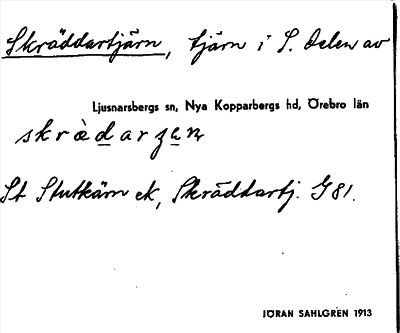 Skräddartjärn, tjärn i S. delen av
Ljusnarsbergs sn, Nya Kopparbergs hd, Örebro län
skrèdarʒen
St Stutkärn ek, Skräddartj. G 81.
JÖRAN SAHLGREN 1913